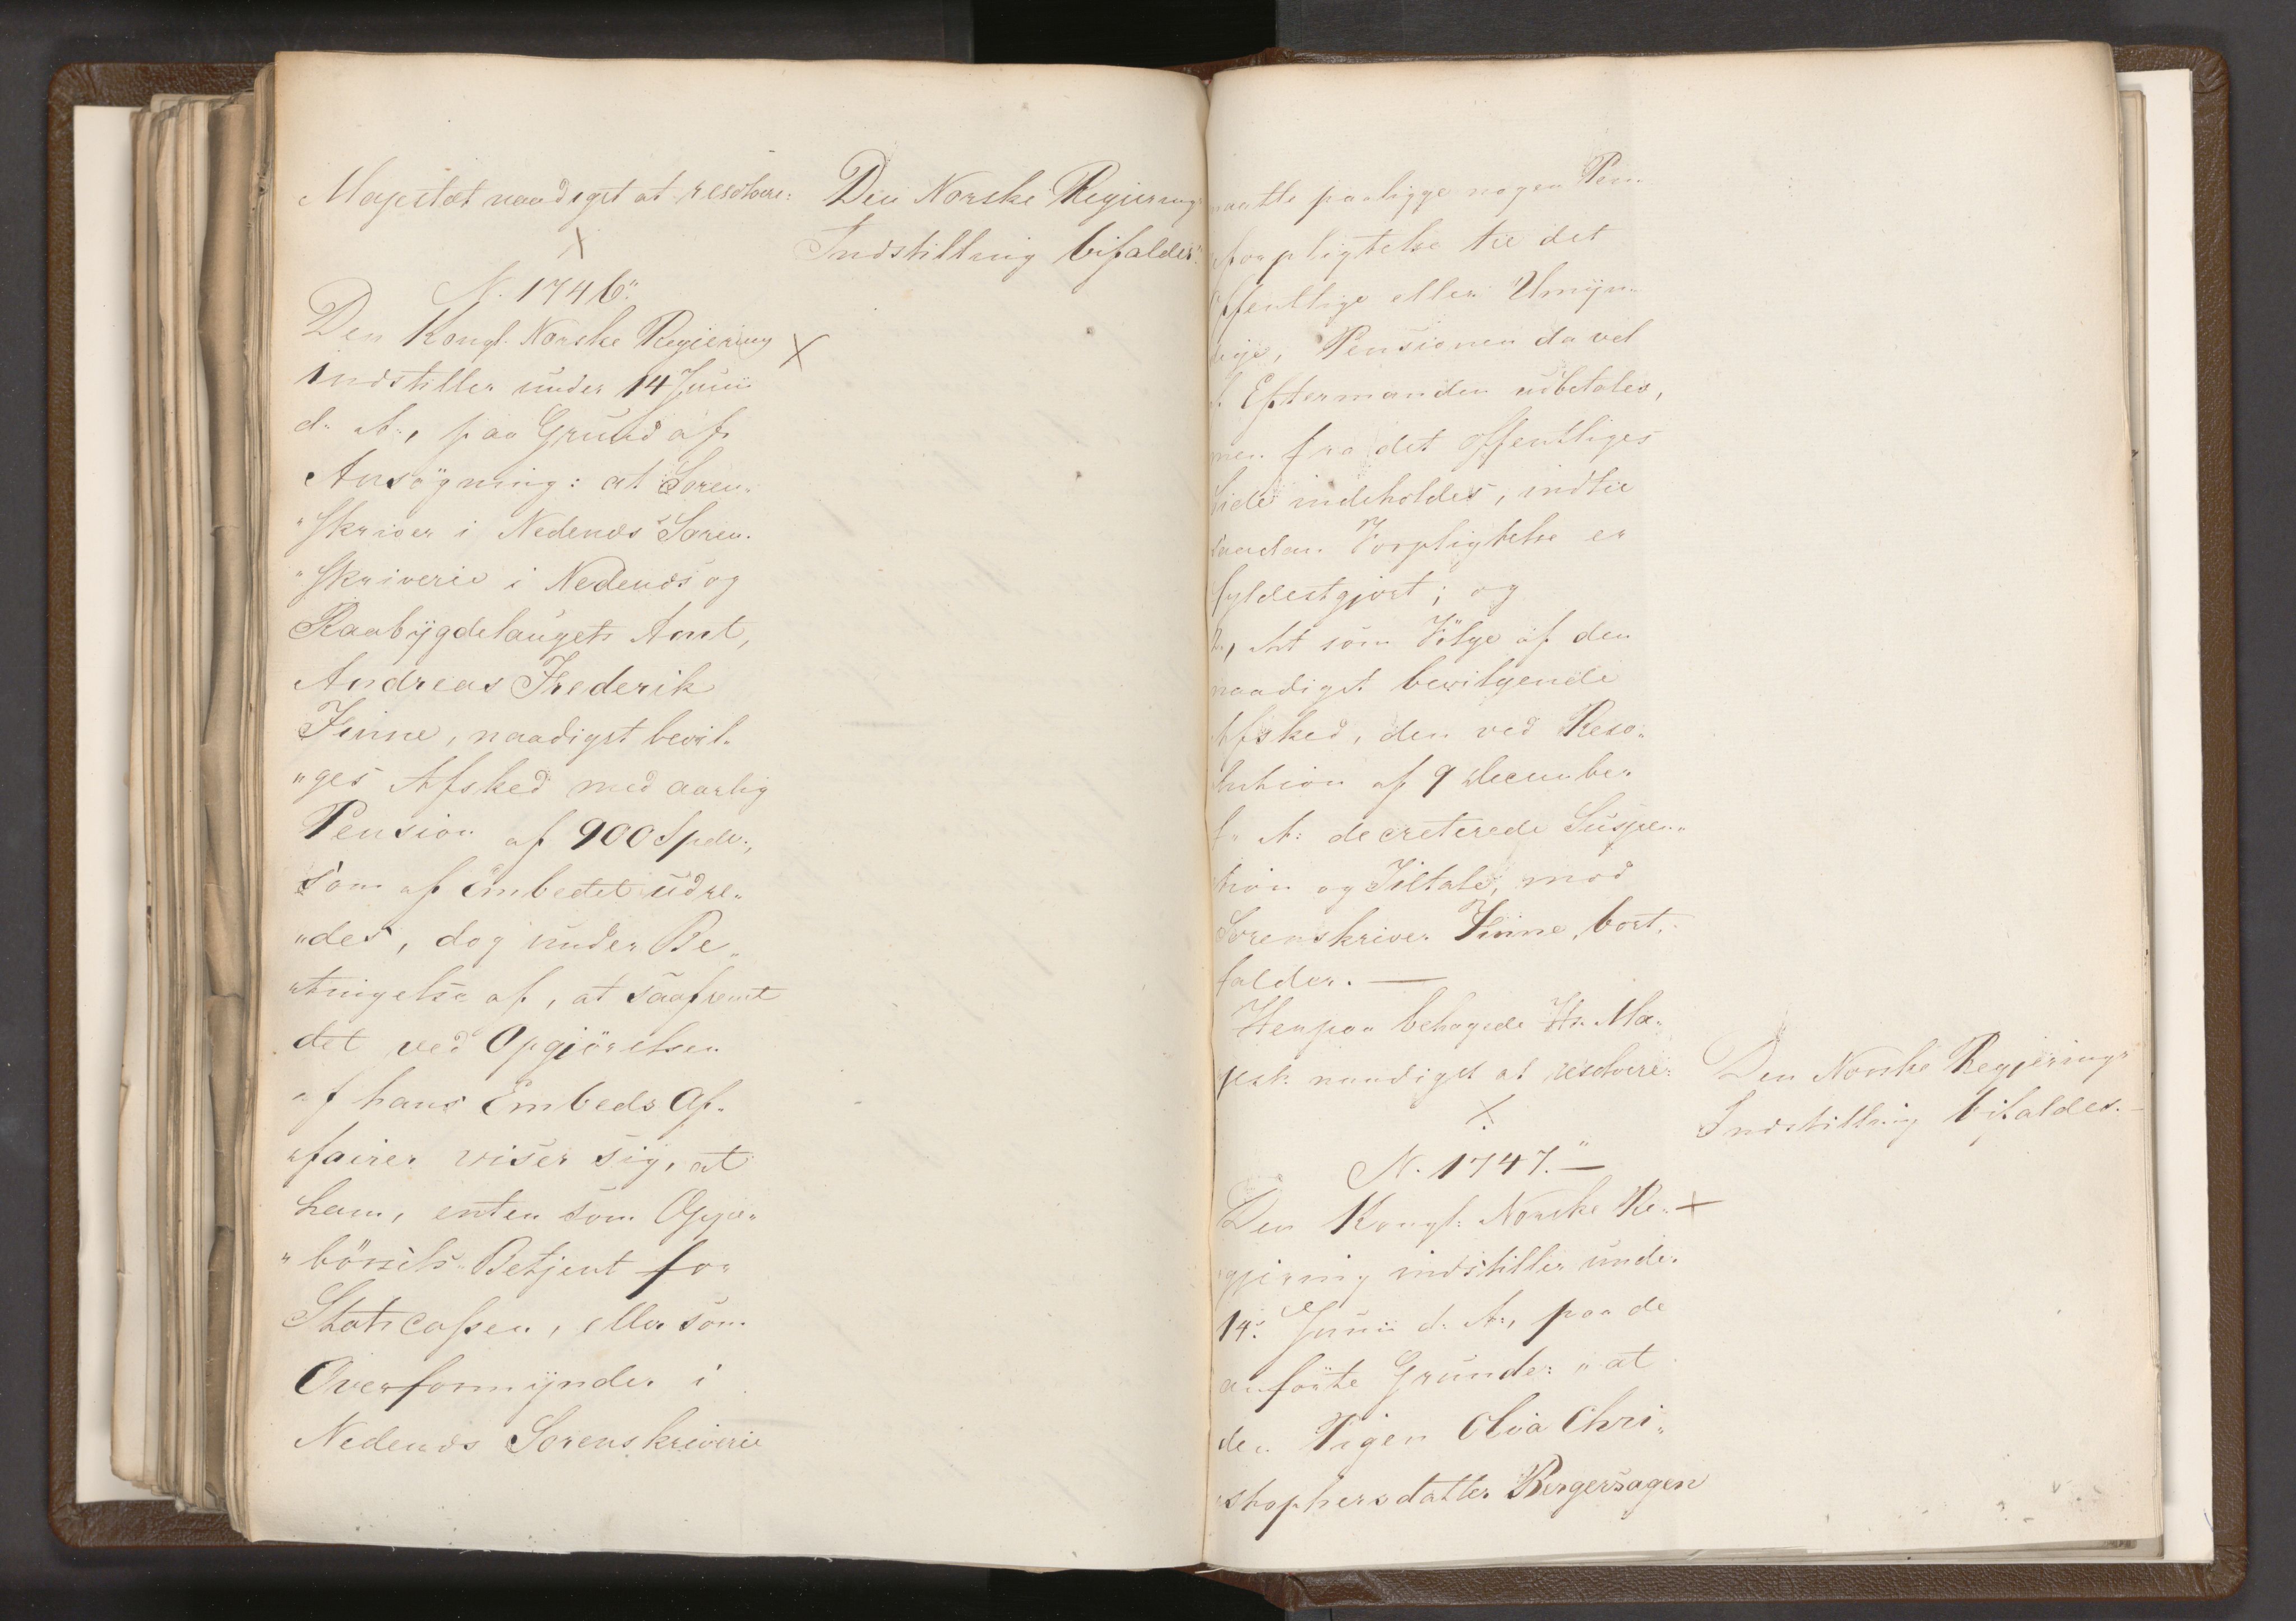 Majestæt naadigst at resolvere:
Den Norske Regierings
Indstilling bifaldes.
N. 1746.
Den Kongl. Norske Regiering
indstiller under 14 Junii
d. A., paa Grund af
Ansøgning: at Soren-
"skriver i Nedenæs Soren-
"skriverie i Nedenæs og
Raabygdelaugets Amt,
Andreas Frederik
Finne, naadigst bevil-
"ges Afsked med aarlig
Pension af 900 Spdr.,
som af Embedet udre-
"des, dog under Be-
"tingelse af, at saafremt
det ved Opgjørelsen
af hans Embeds Af-
"fairer viser sig, at
ham, enten som Oppe-
"børsels-Betjent for
Statscassen, eller som
Overformynder i
Nedenæs Sorenskriverie
maatte paaligge nogen Pen-
forpligtelse til det
Offentlige eller Umyn-
dige, Pensionen da vel
f. Eftermanden udbetales,
men fra det offentliges
Side indeholdes, indtil
saadan Forpligtelse er
fyldestgjort; og
2, At som Følge af den
naadigst bevilgende
Afsked, den ved Reso-
lution af 9 December
f. A. decreterede Suspen-
tion og Tiltale, mod
Sorenskriver Finne, bort-
falder. —
Herpaa behagede Hs. Ma-
jest. naadigst at resolvere:
Den Norske Regjerings
Indstilling bifaldes. —
N. 1747. —
Den Kongl. Norske Re-
gjering indstiller under
14. Junii d. A., paa de
anførte Grunde: "at
den Pigen Olia Chri-
stophersdatter Bergersagen